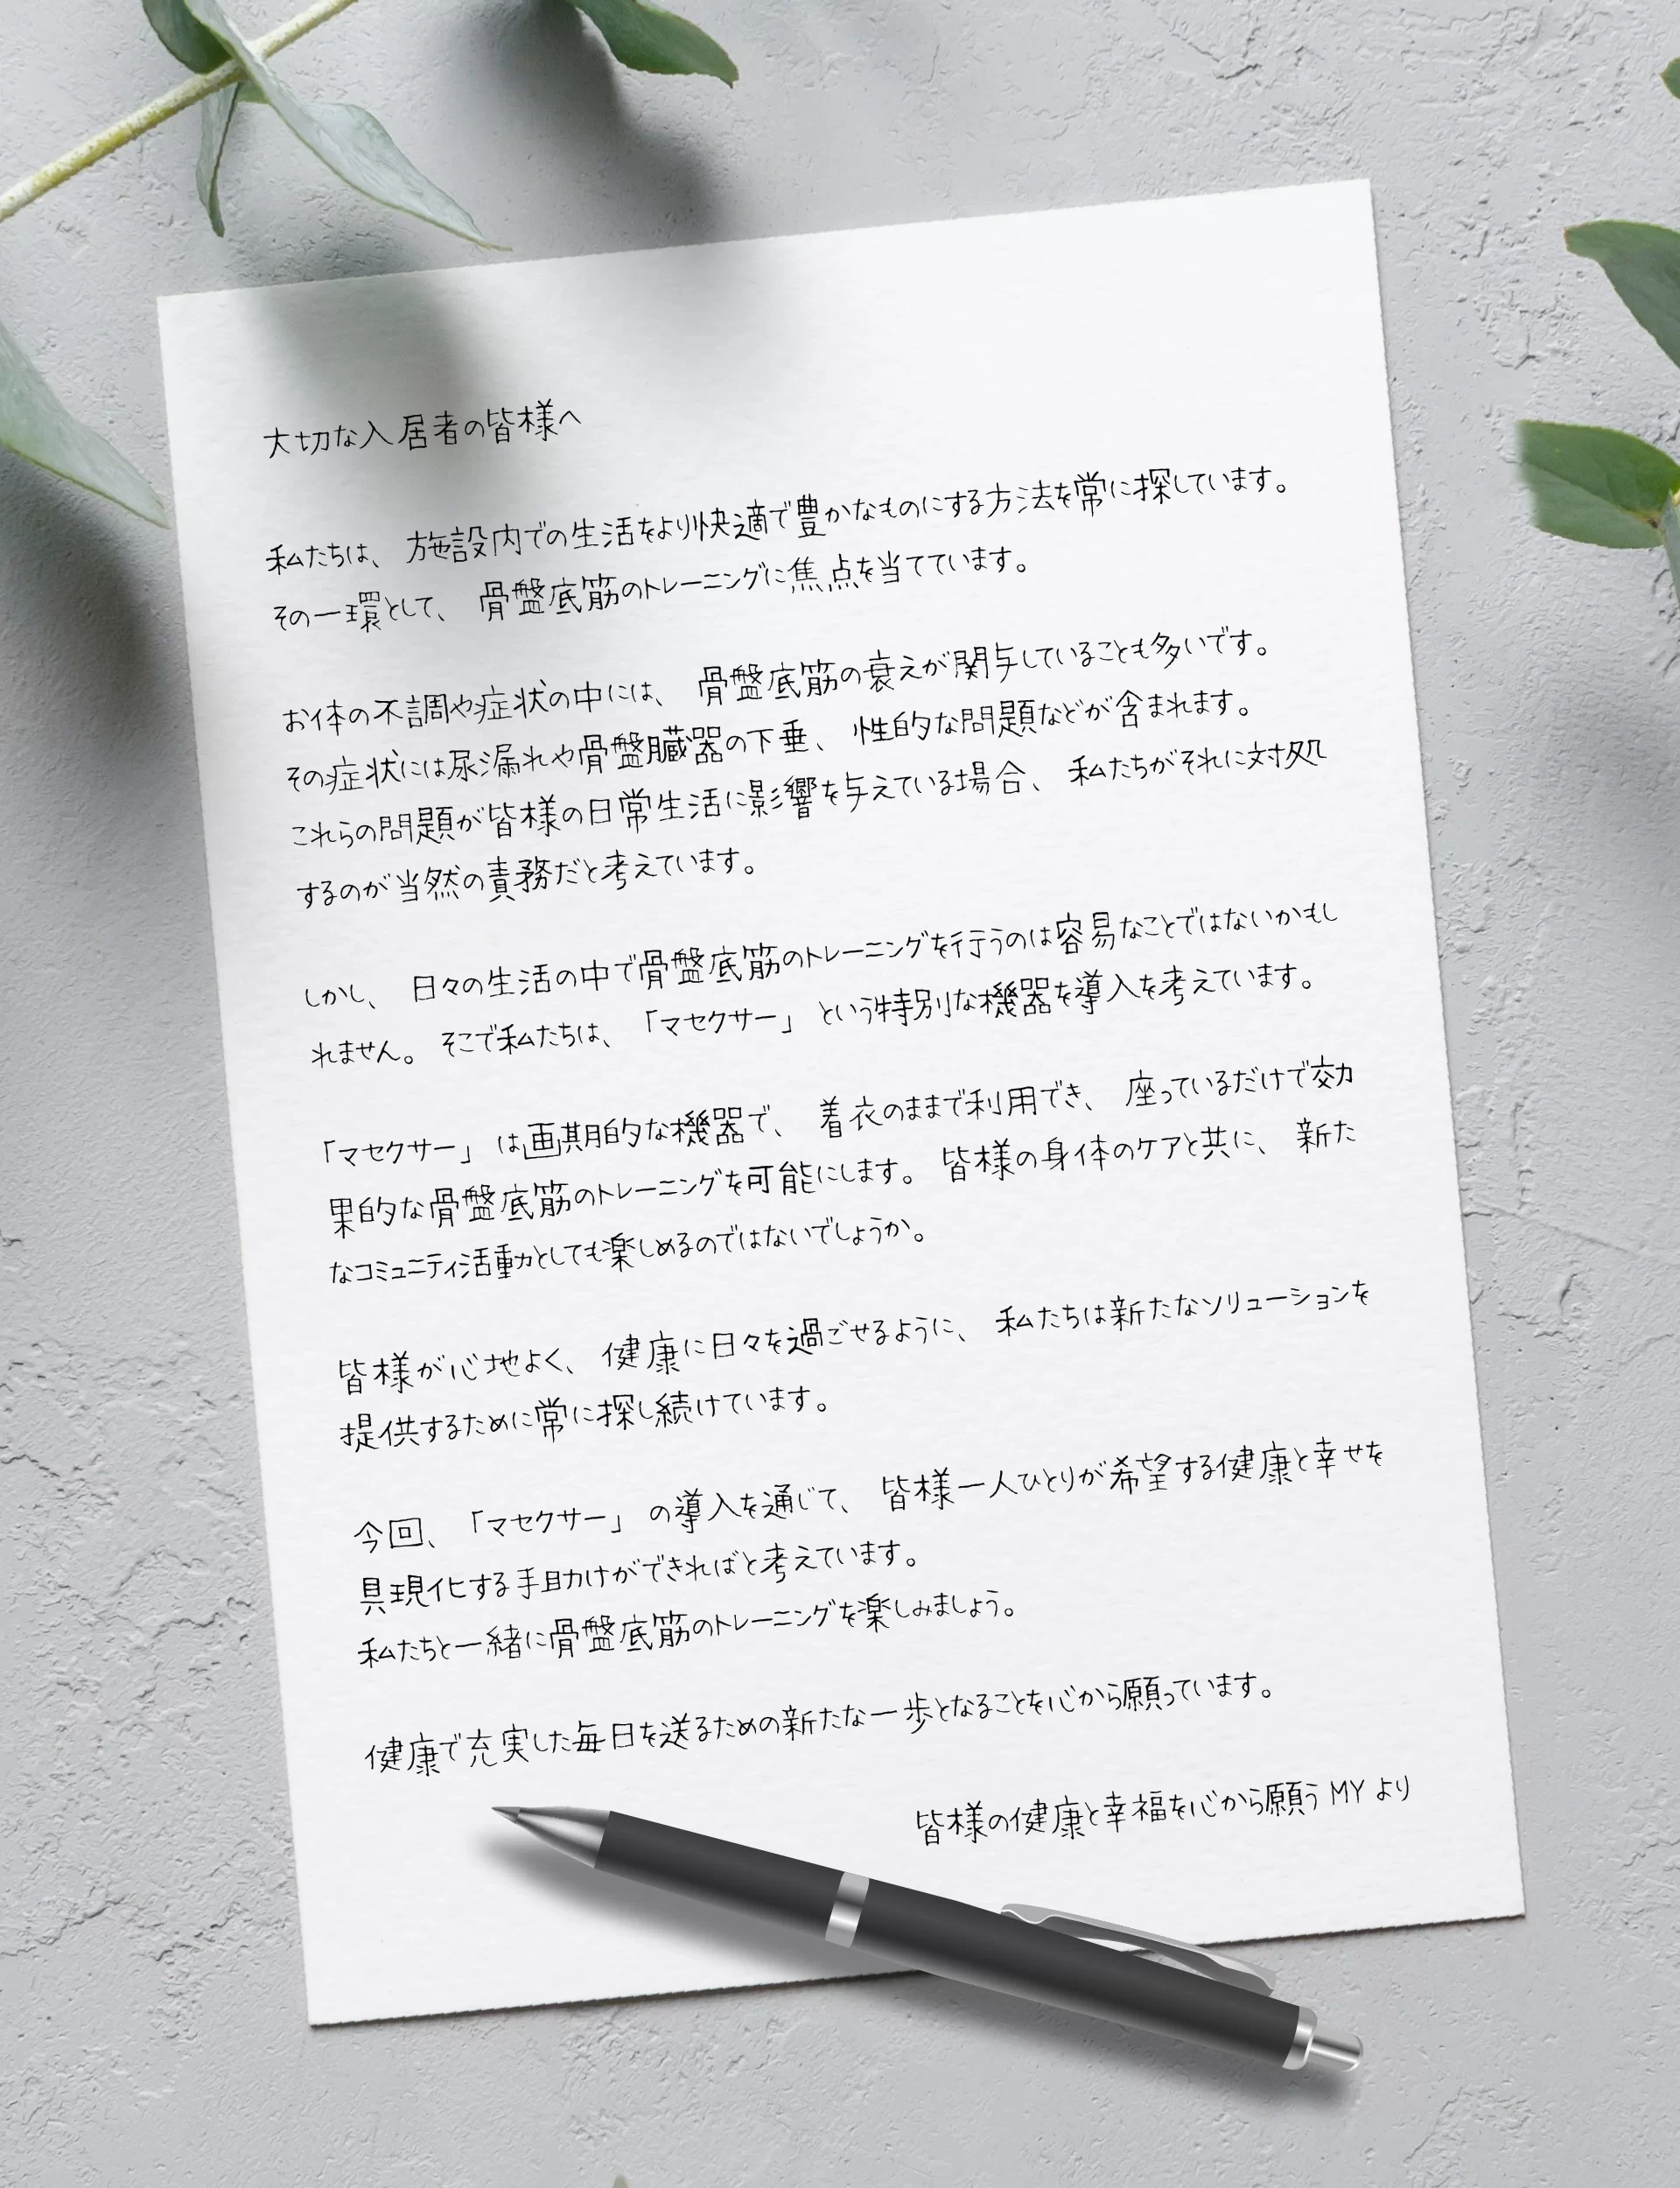 大切な入居者の皆様へ
私たちは、施設内での生活をより快適で豊かなものにする方法を常に探しています。
その一環として、骨盤底筋のトレーニングに焦点を当てています。
お体の不調や症状の中には、骨盤底筋の衰えが関与していることも多いです。
その症状には尿漏れや骨盤臓器の下垂、性的な問題などが含まれます。
これらの問題が皆様の日常生活に影響を与えている場合、私たちがそれに対処
するのが当然の責務だと考えています。
しかし、日々の生活の中で骨盤底筋のトレーニングを行うのは容易なことではないかもし
れません。そこで私たちは、「マセクサー」という特別な機器を導入を考えています。
「マセクサー」は画期的な機器で、着衣のままで利用でき、座っているだけで効
果的な骨盤底筋のトレーニングを可能にします。皆様の身体のケアと共に、新た
なコミュニティ活動としても楽しめるのではないでしょうか。
皆様が心地よく、健康に日々を過ごせるように、私たちは新たなソリューションを
提供するために常に探し続けています。
今回、「マセクサー」の導入を通じて、皆様一人ひとりが希望する健康と幸せを
具現化する手助けができればと考えています。
私たちと一緒に骨盤底筋のトレーニングを楽しみましょう。
健康で充実した毎日を送るための新たな一歩となることを心から願っています。
皆様の健康と幸福を心から願う MY より